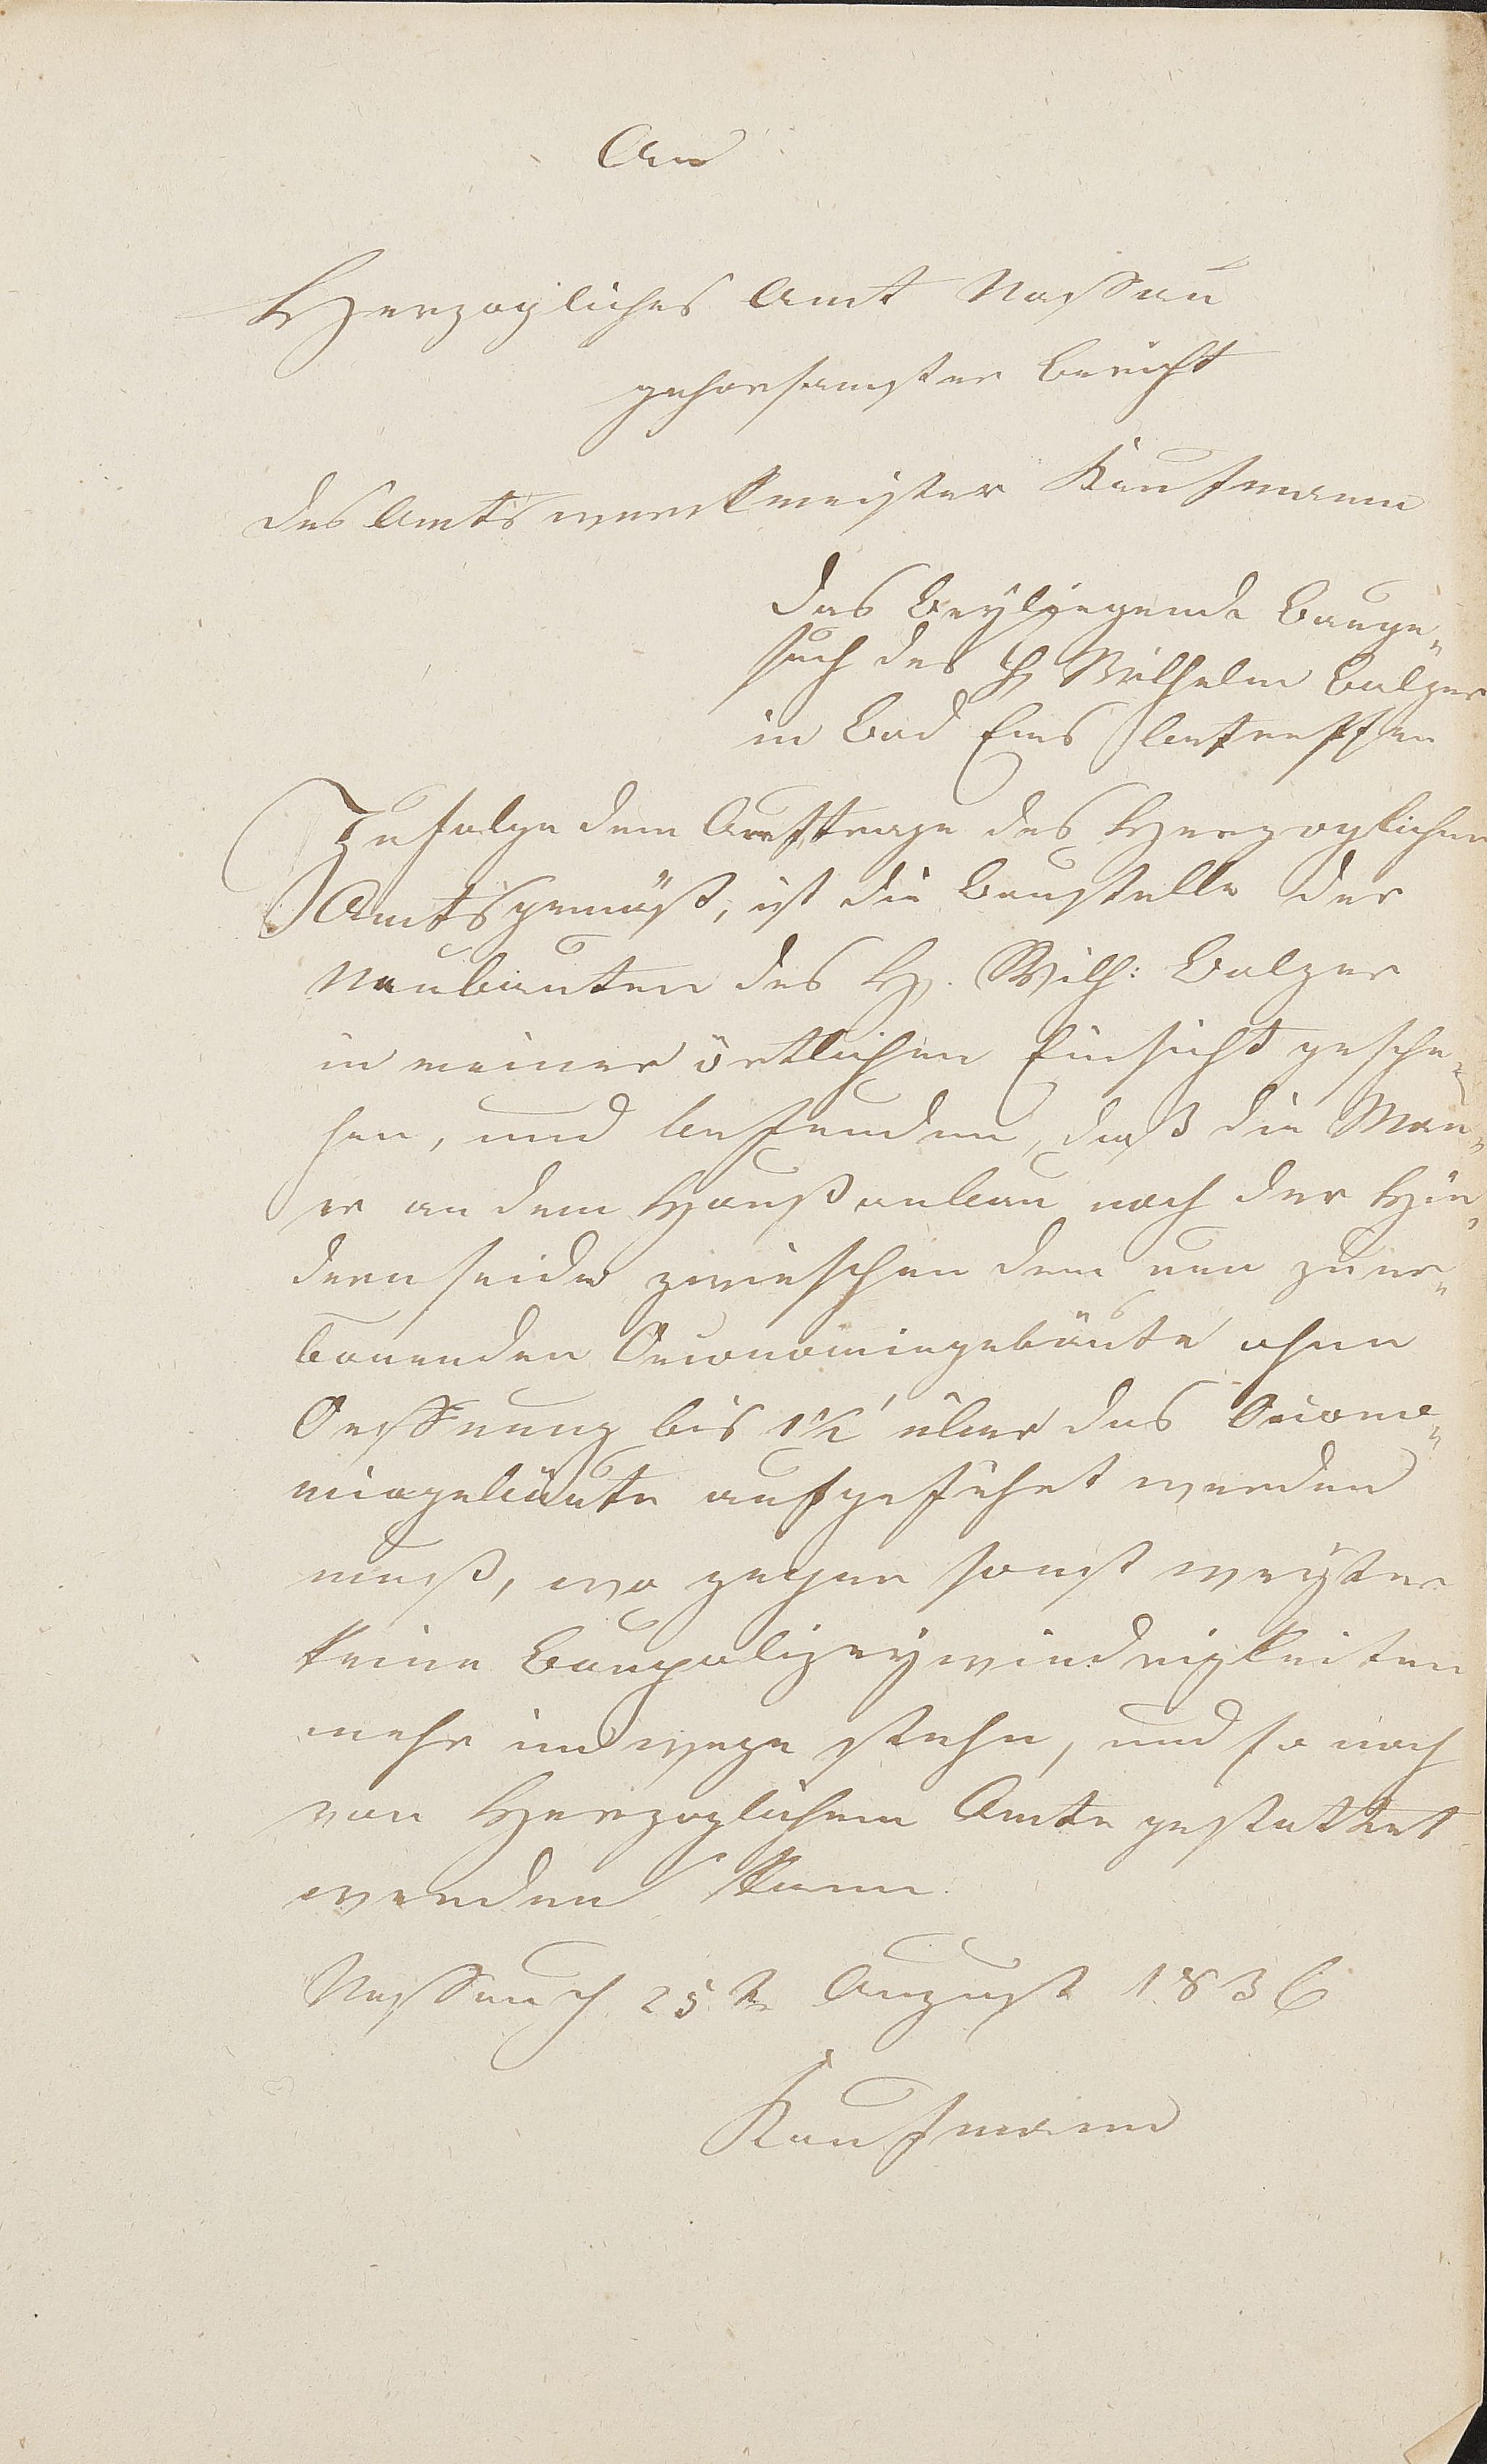 An
Herzogliches Amt Nassau
gehorsamster Bericht
des Amtswerkmeister Kaufmann
das beyliegende Bauge-
such des H Wilhelm Balzer
in Bad Ems betreffen
Zufolge dem Auftrage des Herzoglichen
Amts gemäß, ist die Baustelle der
Neubauten des H. Wilh: Balzer
in meiner örtlichen Einsicht gesche-
hen, und befunden, daß die Mau-
er an dem Haußanbau nach der Hin-
dernseide zwieschen dem neu zu er-
bauenden Oeconomiegebäute ohne
Oeffnung bis 1½' über das Oicono-
miegebäute aufgeführt werden
muß, wo gegen sonst weyter
keine Baupolizeywiedrigkeiten
mehr im wege stehn, und so nach
von Herzoglichem Amte gestattet
werden kann.
Nassau d 25te August 1836
Kaufmann